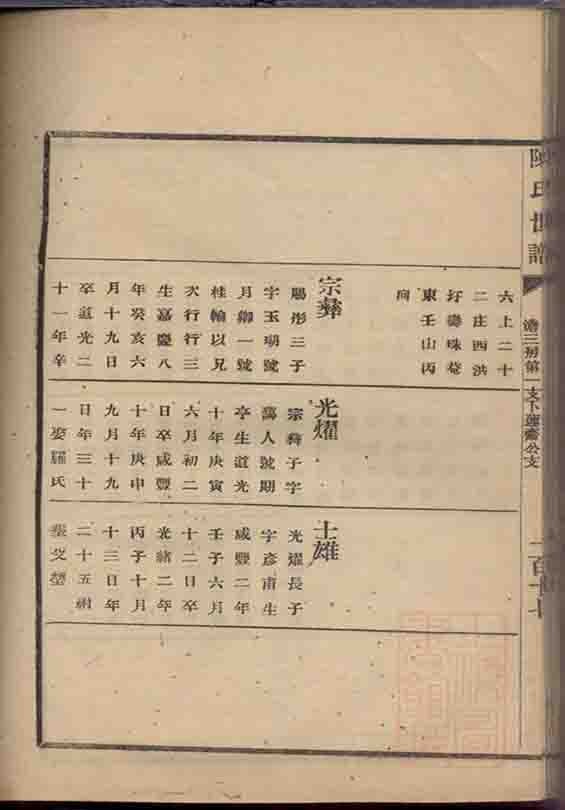 陳氏世譜
濟三房第一支下蓮齋公支
六上二十
二庄西洪
圩壽珠菴
東壬山丙
向
宗彝
賜彤三子
字玉瑚號
月卿一號
桂輪以兄
次行行三
生嘉慶八
年癸亥六
月十九日
卒道光二
十一年辛
光燿
宗彝子字
藹人號期
亭生道光
十年庚寅
六月初二
日卒咸豐
十年庚申
九月十九
日年三十
一娶羅氏
士雄
光燿長子
字彥甫生
咸豐二年
壬子六月
十二日卒
光緒二年
丙子十月
十三日年
二十五祔
張父塋